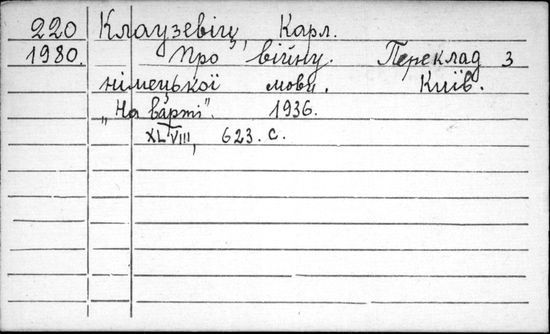 220 Клаузевіц, Карл.
1980. Про війну. Переклад з
німецької мови. Київ.
„На варті". 1936.
XLVIII, 623. с.